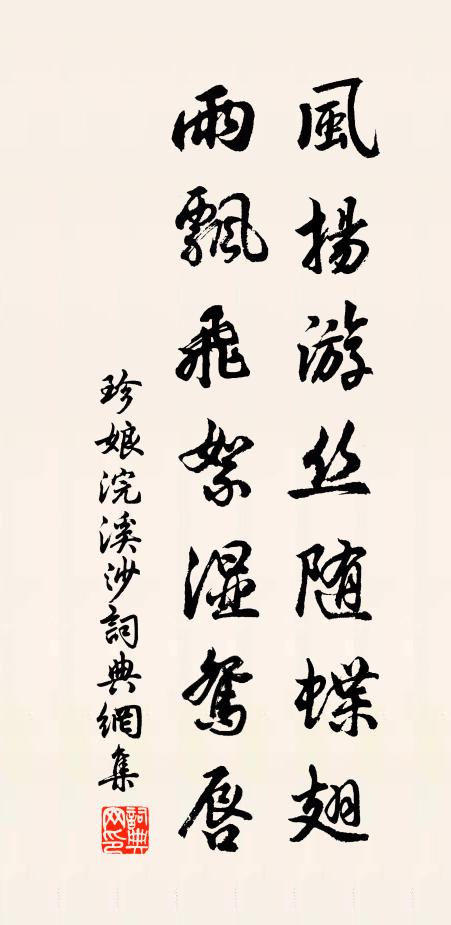 風揚游丝随蝶翅
雨飄飛絮湿鶯唇
珍娘浣溪沙詞典網集
詞典网印